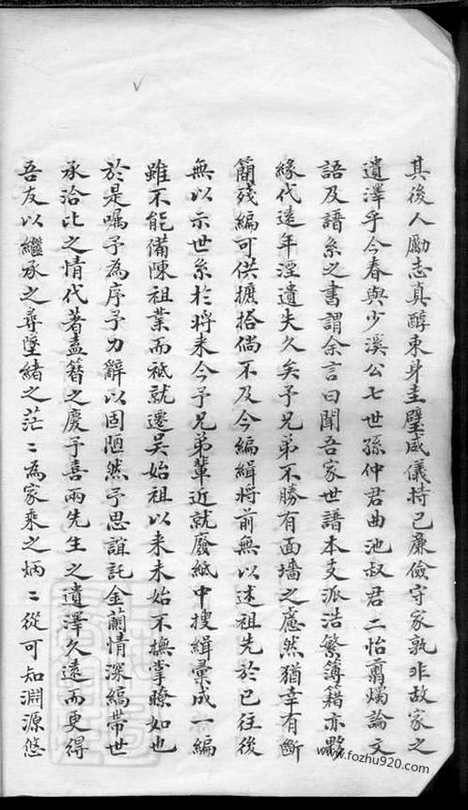 其後人勵志真醇束身圭璧咸儀持己廉儉守家孰非故家之
遺澤乎今春與少溪公七世孫仲君曲池叔君二怡翦燭論文
語及譜系之書謂余言曰聞吾家世譜本支派浩繁簿籍亦夥
緣代遠年湮遺失久矣予兄弟不勝有面墻之慮然猶幸有斷
簡殘編可供摭拾倘不及今編緝將前無以述祖先於已往後
無以示世系於將来今予兄弟輩近就廢紙中搜緝彙成一編
雖不能備陳祖業而祗就遷吴始祖以来未始不撫掌瞭如也
於是嘱予為序予力辭以固陋然予思誼託金蘭情深縞帶世
承洽比之情代著盍簪之慶予喜雨先生之遺澤久遠而更得
吾友以繼承之尋墜緒之茫〻為家乘之炳〻從可知淵源悠
www.fozhu920.com